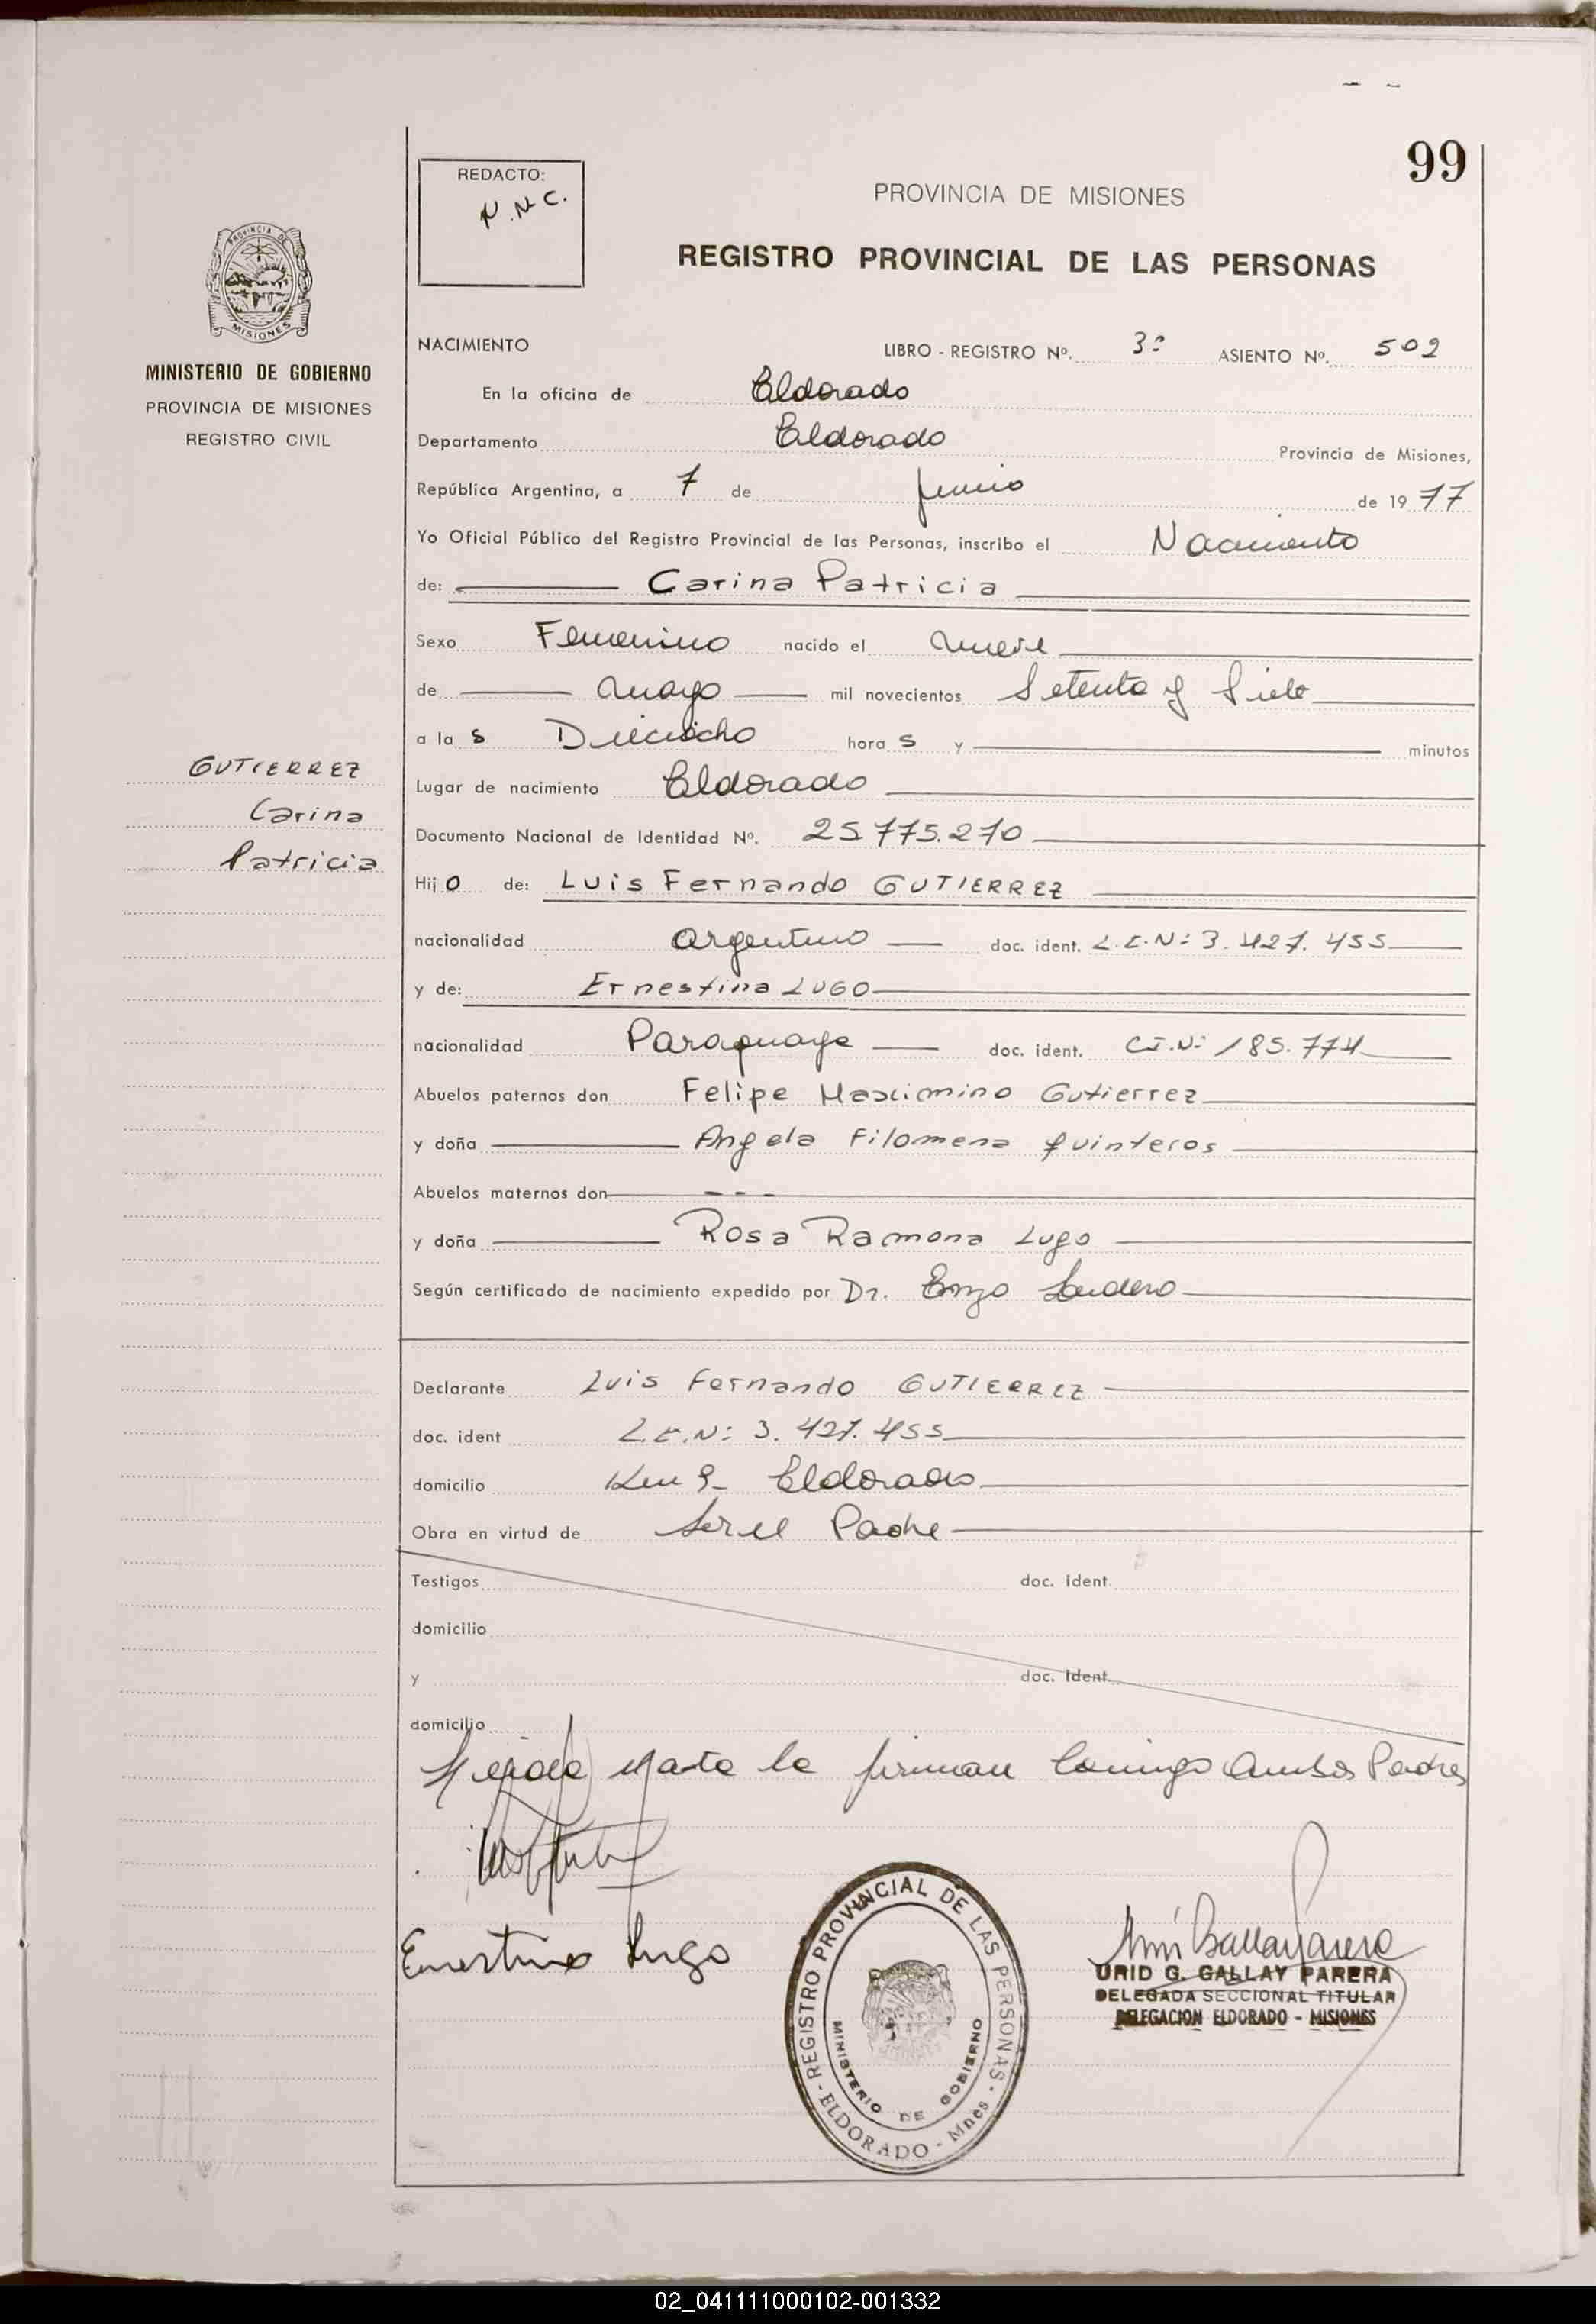 99
REDACTO:
N.N.C.
PROVINCIA DE MISIONES
REGISTRO PROVINCIAL DE LAS PERSONAS
PROVINCIA DE
MISIONES
MINISTERIO DE GOBIERNO
PROVINCIA DE MISIONES
REGISTRO CIVIL
NACIMIENTO LIBRO - REGISTRO Nº. 3º ASIENTO Nº. 502
En la oficina de Eldorado
Departamento Eldorado Provincia de Misiones,
República Argentina, a 7 de Junio de 1977
Yo Oficial Público del Registro Provincial de las Personas, inscribo el Nacimiento
de: Carina Patricia
Sexo Femenino nacido el nueve
de mayo mil novecientos Setenta y Siete
a la s Dieciocho hora s y minutos
GUTIERREZ
Carina
Patricia
Lugar de nacimiento Eldorado
Documento Nacional de Identidad Nº. 25.775.270
Hijo de: Luis Fernando GUTIERREZ
nacionalidad Argentino doc. ident. L.E.Nº 3.427.455
y de: Ernestina LUGO
nacionalidad Paraguaya doc. ident. C.I.Nº 185.774
Abuelos paternos don Felipe Maximino Gutierrez
y doña Angela Filomena Quinteros
Abuelos maternos don - - -
y doña Rosa Ramona Lugo
Según certificado de nacimiento expedido por Dr. Enzo
Declarante Luis Fernando GUTIERREZ
doc. ident L.E.Nº 3.427.455
domicilio Km 9- Eldorado
Obra en virtud de Ser el Padre
Testigos doc. ident.
domicilio
y doc. Ident.
domicilio
la firman Conmigo Ambos Padres
Ernestina Lugo
REGISTRO PROVINCIAL DE LAS PERSONAS
MINISTERIO DE GOBIERNO
- ELDORADO - Mnes -
URID G. GALLAY PARERA
DELEGADA SECCIONAL TITULAR
DELEGACION ELDORADO - MISIONES
02_041111000102-001332